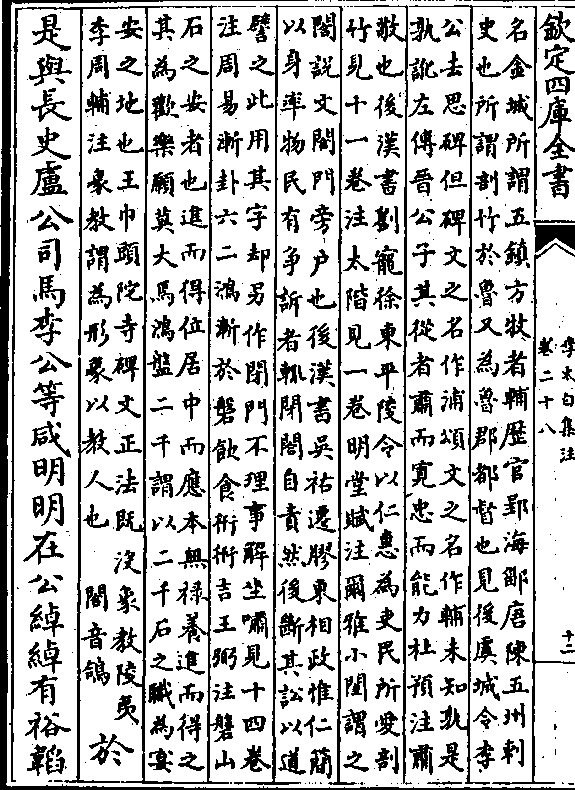 欽定四庫全書
李太白集注
卷二十八
十二
名金城所謂五鎮方牧者輔歴官郢海鄒唐陳五州刺
史也所謂剖竹於魯又為魯郡都督也見後虞城令李
公去思碑但碑文之名作浦頌文之名作輔未知孰是
孰訛左傳晉公子其從者肅而寬忠而能力杜預注肅
敬也後漢書劉寵徐東平陵令以仁惠為吏民所愛剖
竹見十一卷注太階見一卷明堂賦注爾雅小閨謂之
閤說文閤門旁户也後漢書吳祐遷膠東相政惟仁簡
以身率物民有争訴者輒閉閤自責然後斷其訟以道
譬之此用其字却另作閉門不理事解坐嘯見十四卷
注周易漸卦六二鴻漸於磐飲食衎衎吉王弼注磐山
石之安者也進而得位居中而應本無禄養進而得之
其為歡樂願莫大焉鴻盤二千謂以二千石之職為宴
安之地也王巾頭陀寺碑文正法既没象教陵夷
李周輔注象教謂為形象以教人也 閤音鴿
於
是與長史盧公司馬李公等咸明明在公綽綽有裕韜